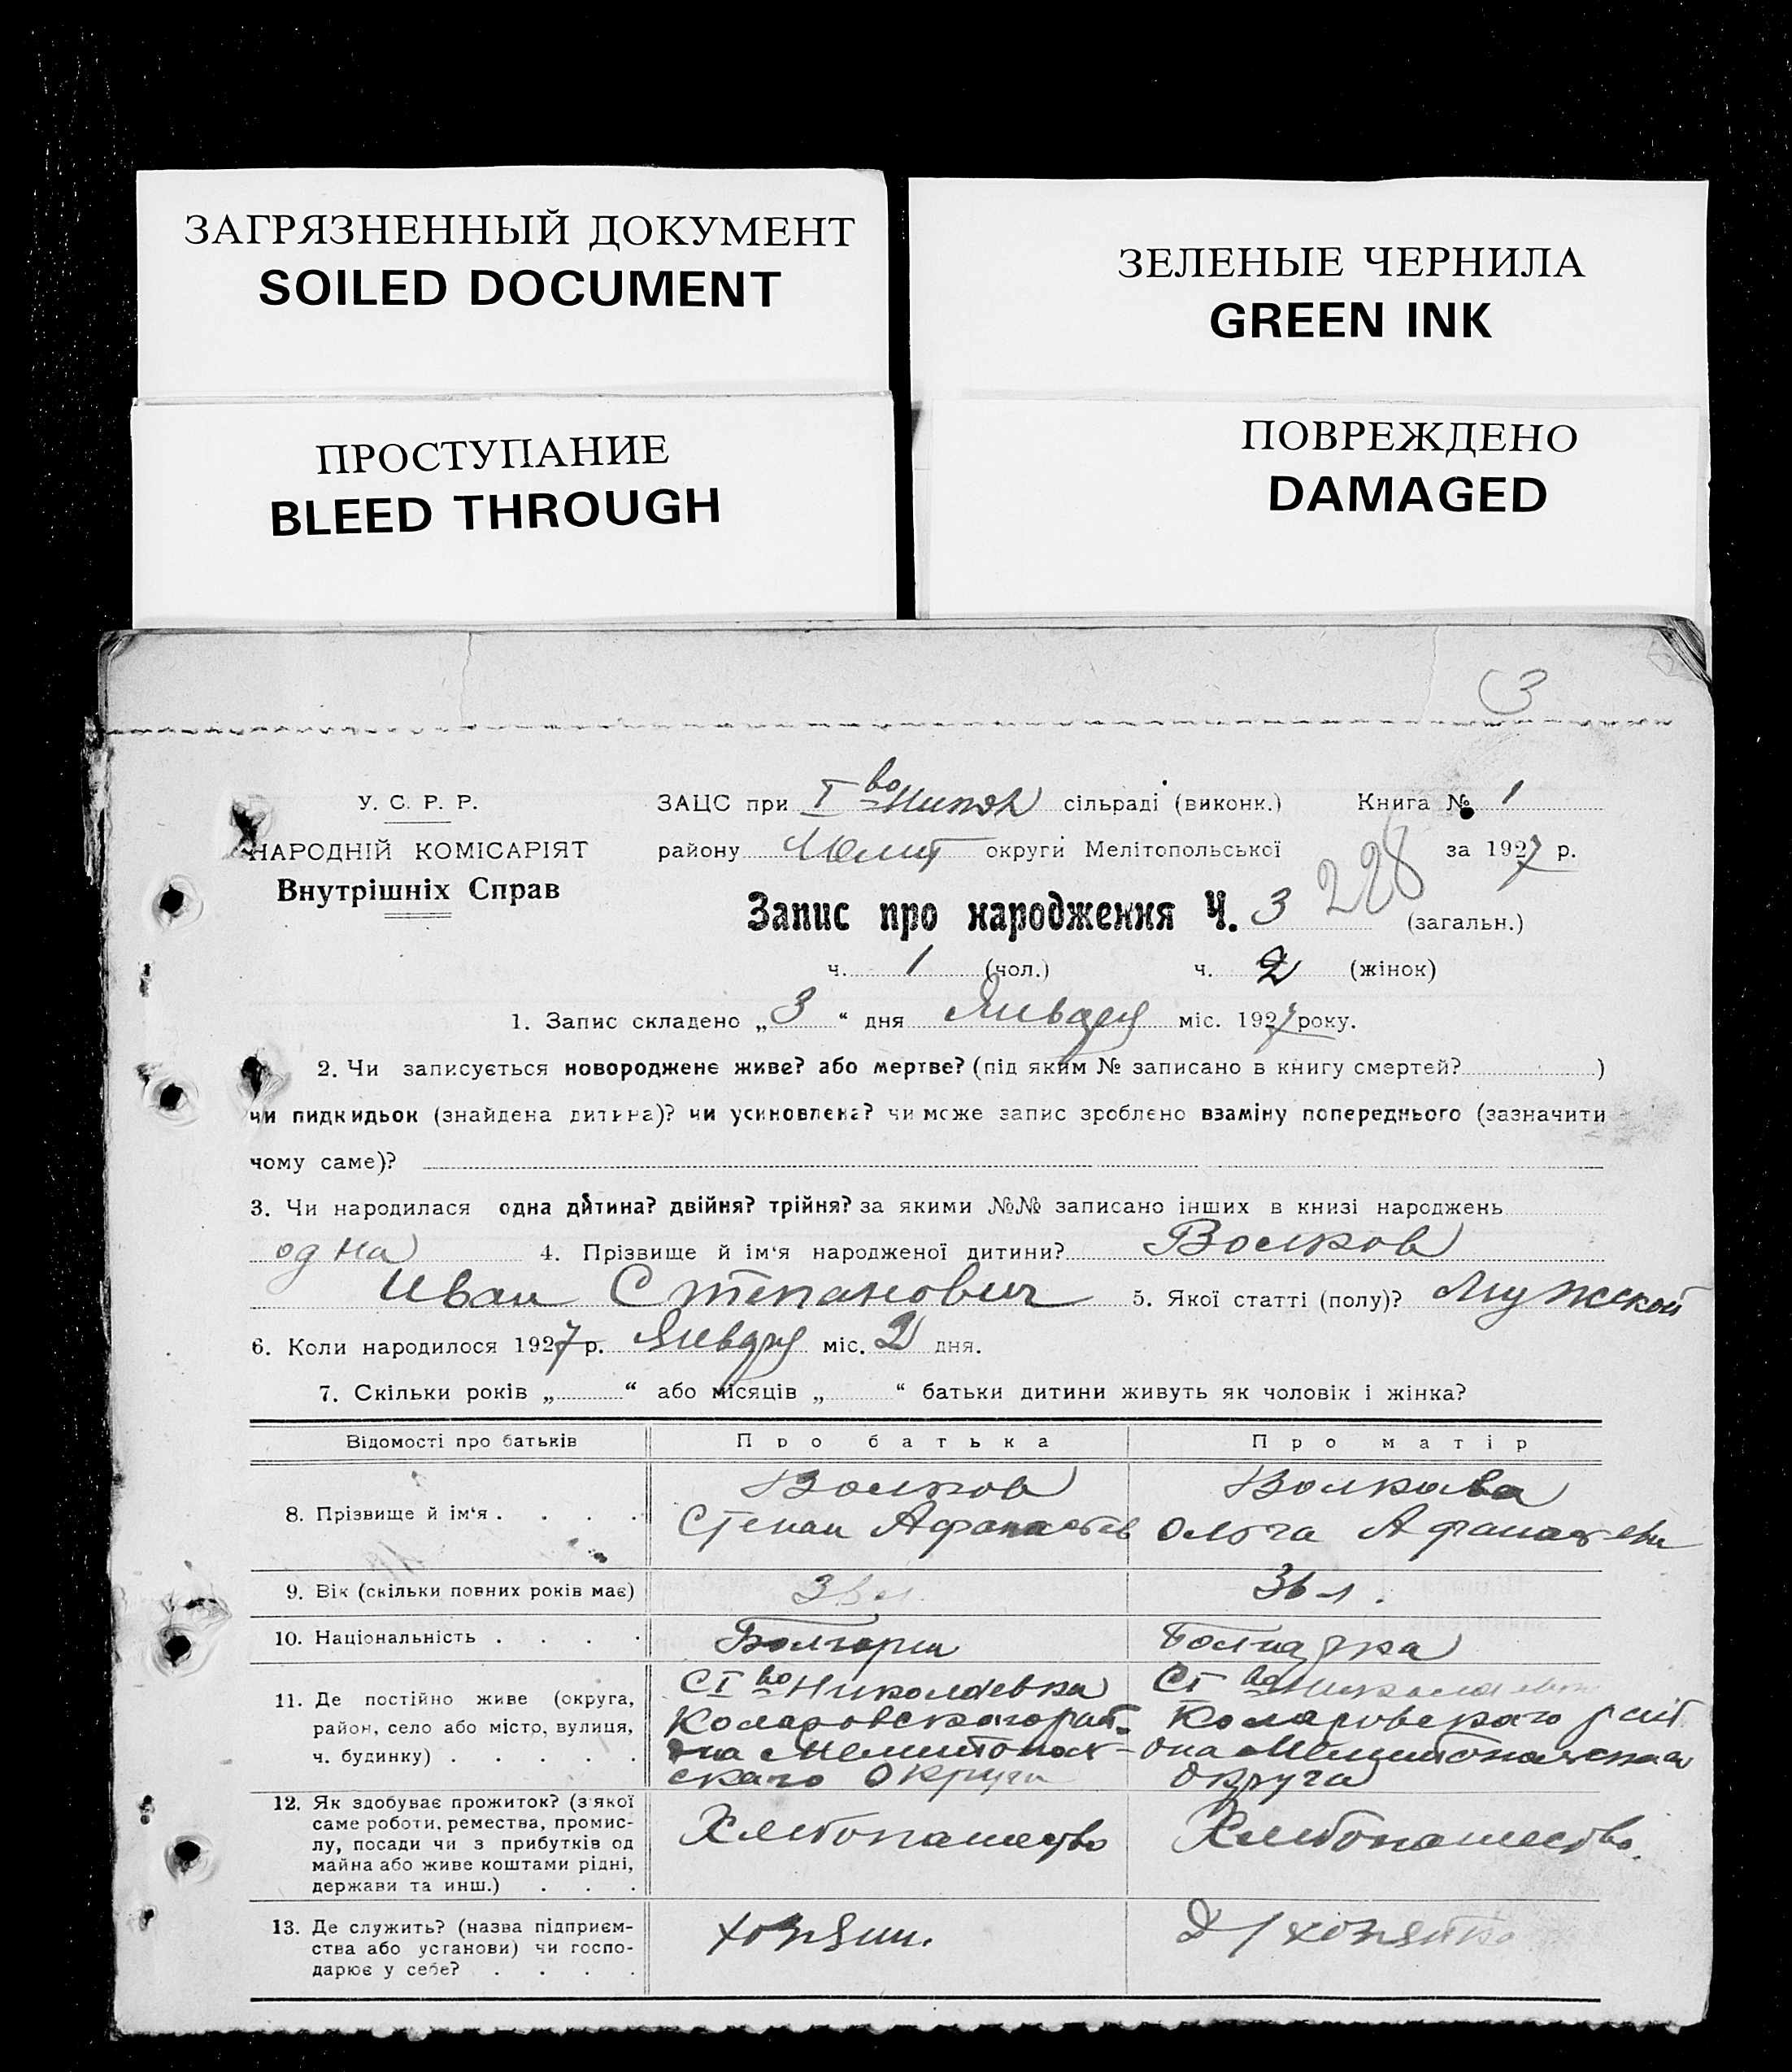 ЗАГРЯЗНЕННЫЙ ДОКУМЕНТ
SOILED DOCUMENT
ЗЕЛЕНЫЕ ЧЕРНИЛА
GREEN INK
ПРОСТУПАНИЕ
BLEED THROUGH
ПОВРЕЖДЕНО
DAMAGED
3
У. С. Р. Р.
НАРОДНІЙ КОМІСАРІЯТ
Внутрішніх Справ
ЗАЦС при I во сільраді (виконк.) Книга № 1
району округи Мелітопольської за 1927 р.
Запис про народження Ч. 3 228 (загальн.)
ч. 1 (чол.) ч. 2 (жінок)
1. Запис складено „3“ дня Января міс. 1927 року.
2. Чи записується новороджене живе? або мертве? (під яким № записано в книгу смертей? )
чи пидкидьок (знайдена дитина)? чи усиновлена? чи може запис зроблено взаміну попереднього (зазначити
чому саме)?
3. Чи народилася одна дитина? двійня? трійня? за якими №№ записано інших в книзі народжень
одна 4. Прізвище й ім‘я народженої дитини? Волков
Иван Степанович 5. Якої статті (полу)? Мужской
6. Коли народилося 1927 р. Января міс. 2 дня.
7. Скільки років „ “ або місяців „ “ батьки дитини живуть як чоловік і жінка?
Відомості про батьків Про батька Про матір
8. Прізвище й ім‘я . . . . Волков Волкова
Степан Афанасьев Ольга Афанасьевн
9. Вік (скільки повних років має) 36 л.
10. Національність . . . . Болгарин Болгарка
11. Де постійно живе (округа, район, село або місто, вулиця, ч. будинку) . . . . .
С I во Николаевка С I во Николаевка
Коларовскаго рай- Коларовскаго рай
она Мелитополь- она Мелитопольскаго
скаго Округа Округа
12. Як здобуває прожиток? (з якої саме роботи, ремества, промислу, посади чи з прибутків од майна або живе коштами рідні, держави та инш.) . . .
Хлебопашество Хлебопашество.
13. Де служить? (назва підприємства або установи) чи господарює у себе? . . . .
хозяин. Д/хозяйка